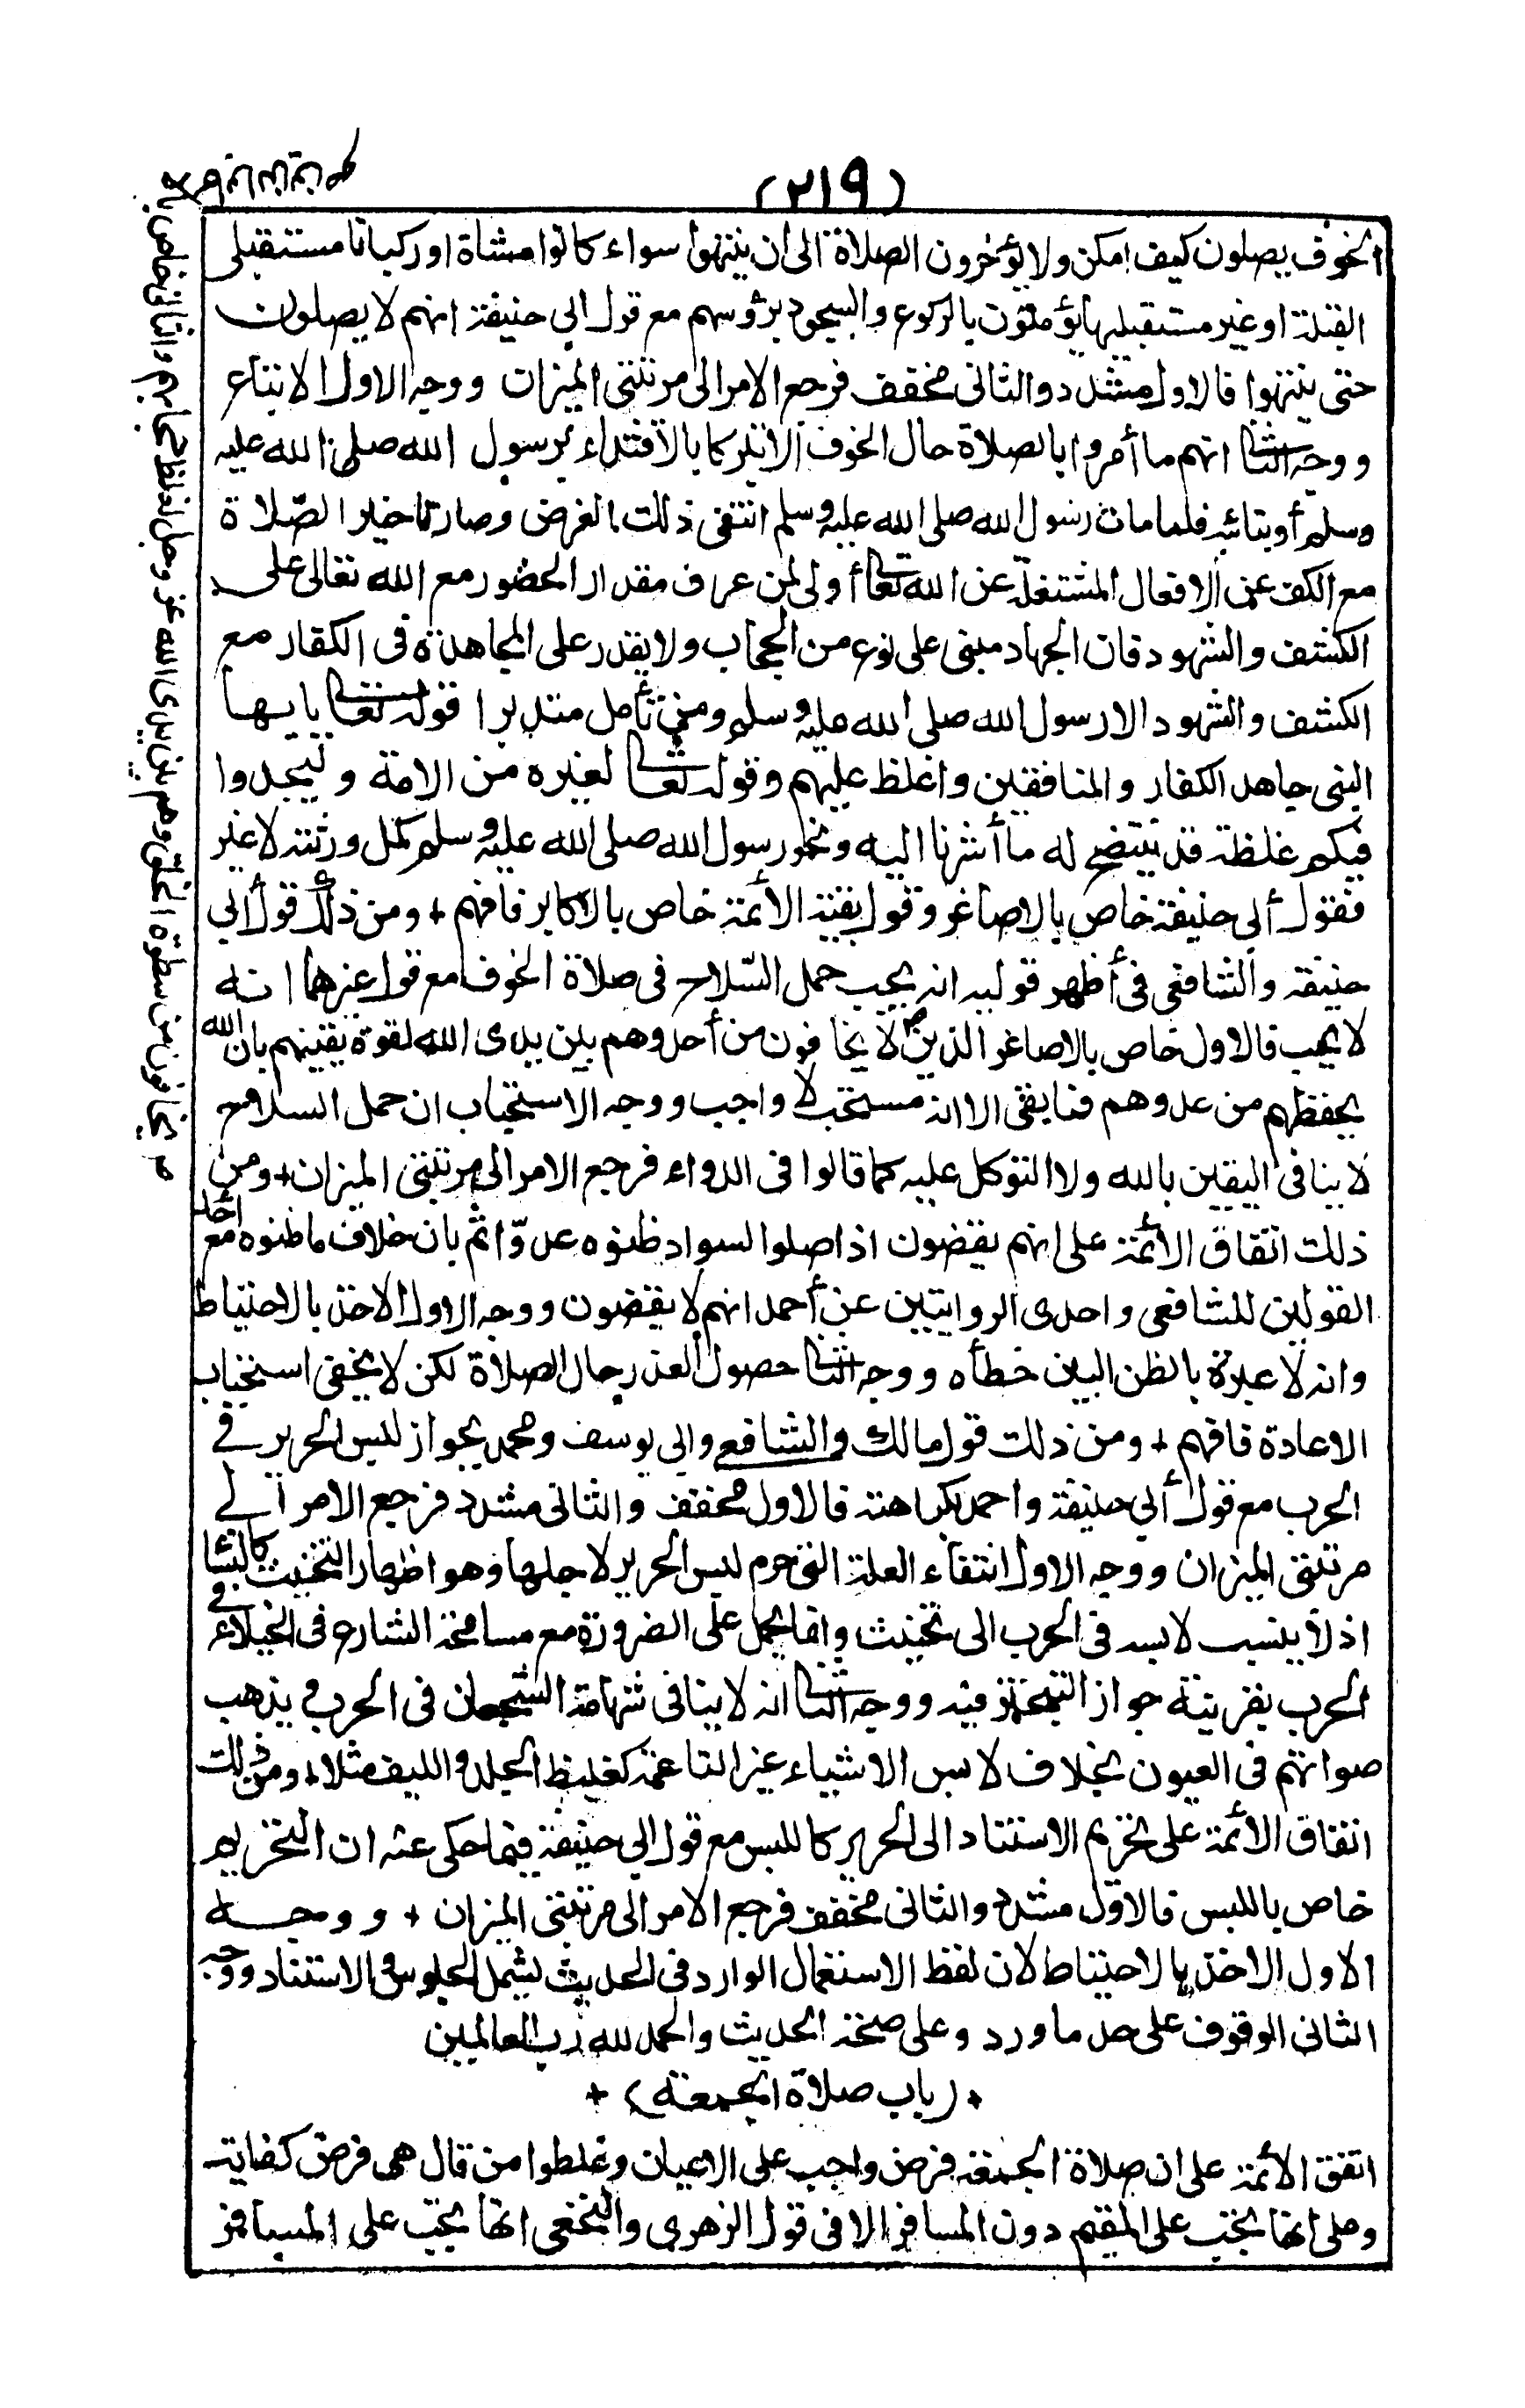 (٢١٩)
الخوف يصلون كيف امكن ولا يؤخرون الصلاة الى ان ينتهوا سواء كانوا مشاة او ركبانا مستقبلى
القبلة او غير مستقبليها يؤمئون بالركوع والسجود برؤوسهم مع قول ابى حنيفة انهم لا يصلون
حتى ينتهوا فالاول مشدد والثانى مخفف فرجع الامر الى مرتبتى الميزان ووجه الاول الاتباع
ووجه الثانى انهم ما أمروا بالصلاة حال الخوف الا تبركا بالاقتداء برسول الله صلى الله عليه
وسلم أو بنائبه فلما مات رسول الله صلى الله عليه وسلم انتفى ذلك الغرض وصار تاخير الصّلاة
مع الكف عن الافعال المشتغلة عن الله تعالى أولى لمن عرف مقدار الحضور مع الله تعالى على
الكشف والشهود فان الجهاد مبنى على نوع من الحجاب ولا يقدر على المجاهدة فى الكفار مع
الكشف والشهود الا رسول الله صلى الله عليه وسلم ومن تأمل متدبرا قوله تعالى يايها
النبى جاهد الكفار والمنافقين واغلظ عليهم وقوله تعالى لغيره من الامة وليجدوا
فيكم غلظة قد يتضح له ما أشرنا اليه ونحو رسول الله صلى الله عليه وسلم كمل ورثته لا غير
فقول أبى حنيفة خاص بالاصاغر وقول بقية الأئمة خاص بالاكابر فافهم + ومن ذلك قول أبى
حنيفة والشافعى فى أظهر قوليه انه يجب حمل السّلاح فى صلاة الخوف مع قول غيرهما انه
لا يجب فالاول خاص بالاصاغر الذين لا يخافون من أحد وهم بين يدى الله لقوة يقينهم بان الله
يحفظهم من عدوهم فما بقى الا انه مستحب لا واجب ووجه الاستحباب ان حمل السلاح
لا ينافى اليقين بالله ولا التوكل عليه كما قالوا فى الدواء فرجع الامر الى مرتبتى الميزان + ومن
ذلك اتفاق الأئمة على انهم يقضون اذا صلوا لسواد ظنوه عدوّا ثم بان خلاف ما ظنوه مع أحد
القولين للشافعى واحدى الروايتين عن أحمد انهم لا يقضون ووجه الاول الاخذ بالاحتياط
وانه لا عبرة بالظن البين خطأه ووجه الثانى حصول العذر حال الصلاة لكن لا يخفى استحباب
الاعادة فافهم + ومن ذلك قول مالك والشافعى وابى يوسف ومحمد بجواز لبس الحرير فى
الحرب مع قول أبى حنيفة واحمد بكراهته فالاول مخفف والثانى مشدد فرجع الامر الى
مرتبتى الميزان ووجه الاول انتفاء العلة التى حرم لبس الحرير لاجلها وهو اظهار التخنيث كالنساء
اذ لا ينسب لابسه فى الحرب الى تخنيث وانما يحمل على الضرورة مع مسامحة الشارع فى الخيلاء فى
الحرب بقرينة جواز التبختر فيه ووجه الثانى انه لا ينافى شهامة الشجعان فى الحرب و يذهب
صوانهم فى العيون بخلاف لابس الاشياء غير الناعمة كغليظ الجلد والليف مثلا + ومن ذلك
اتفاق الأئمة على تحريم الاستناد الى الحرير كاللبس مع قول ابى حنيفة فيما حكى عنه ان التحريم
خاص باللبس فالاول مشدد والثانى مخفف فرجع الامر الى مرتبتى الميزان + ووجه
الاول الاخذ بالاحتياط لان لفظ الاستعمال الوارد فى الحديث يشمل الجلوس والاستناد ووجه
الثانى الوقوف على حد ما ورد وعلى صحة الحديث والحمد لله رب العالمين
+ (باب صلاة الجمعة) +
اتفق الأئمة على ان صلاة الجمعة فرض واجب على الاعيان وغلطوا من قال هى فرض كفاية
وعلى انها تجب على المقيم دون المسافر الا فى قول الزهرى والنخعى انها تجب على المسافر
يخافون من سطوة الخلق وهم بين يدى الله عز وجل لغلظ حجابهم والثانى خاص با